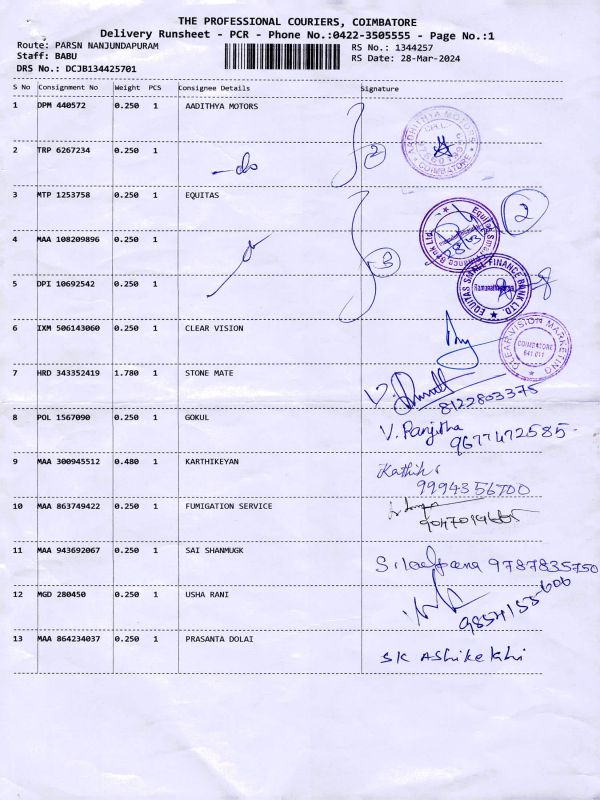 THE PROFESSIONAL COURIERS, COIMBATORE
Delivery Runsheet - PCR - Phone No.:0422-3505555 - Page No.:1
Route: PARSN NANJUNDAPURAM
RS No.: 1344257
Staff: BABU
RS Date: 28-Mar-2024
DRS No.: DCJB134425701
S No Consignment No Weight PCS Consignee Details Signature
1 DPM 440572 0.250 1 AADITHYA MOTORS
COIMBATORE
2 TRP 6267234 0.250 1 -do 2
3 MTP 1253758 0.250 1 EQUITAS 2
4 MAA 108209896 0.250 1 3
5 DPI 10692542 0.250 1
EQUITAS SMALL FINANCE BANK LTD
6 IXM 506143060 0.250 1 CLEAR VISION
CLEAR VISION MARKETING
COIMBATORE
641 011
7 HRD 343352419 1.780 1 STONE MATE
8122803375
8 POL 1567090 0.250 1 GOKUL V. Ranjitha
9677472585
9 MAA 300945512 0.480 1 KARTHIKEYAN
9994356700
10 MAA 863749422 0.250 1 FUMIGATION SERVICE
11 MAA 943692067 0.250 1 SAI SHANMUGK 9787835750
12 MGD 280450 0.250 1 USHA RANI
13 MAA 864234037 0.250 1 PRASANTA DOLAI SK Ashikekhi